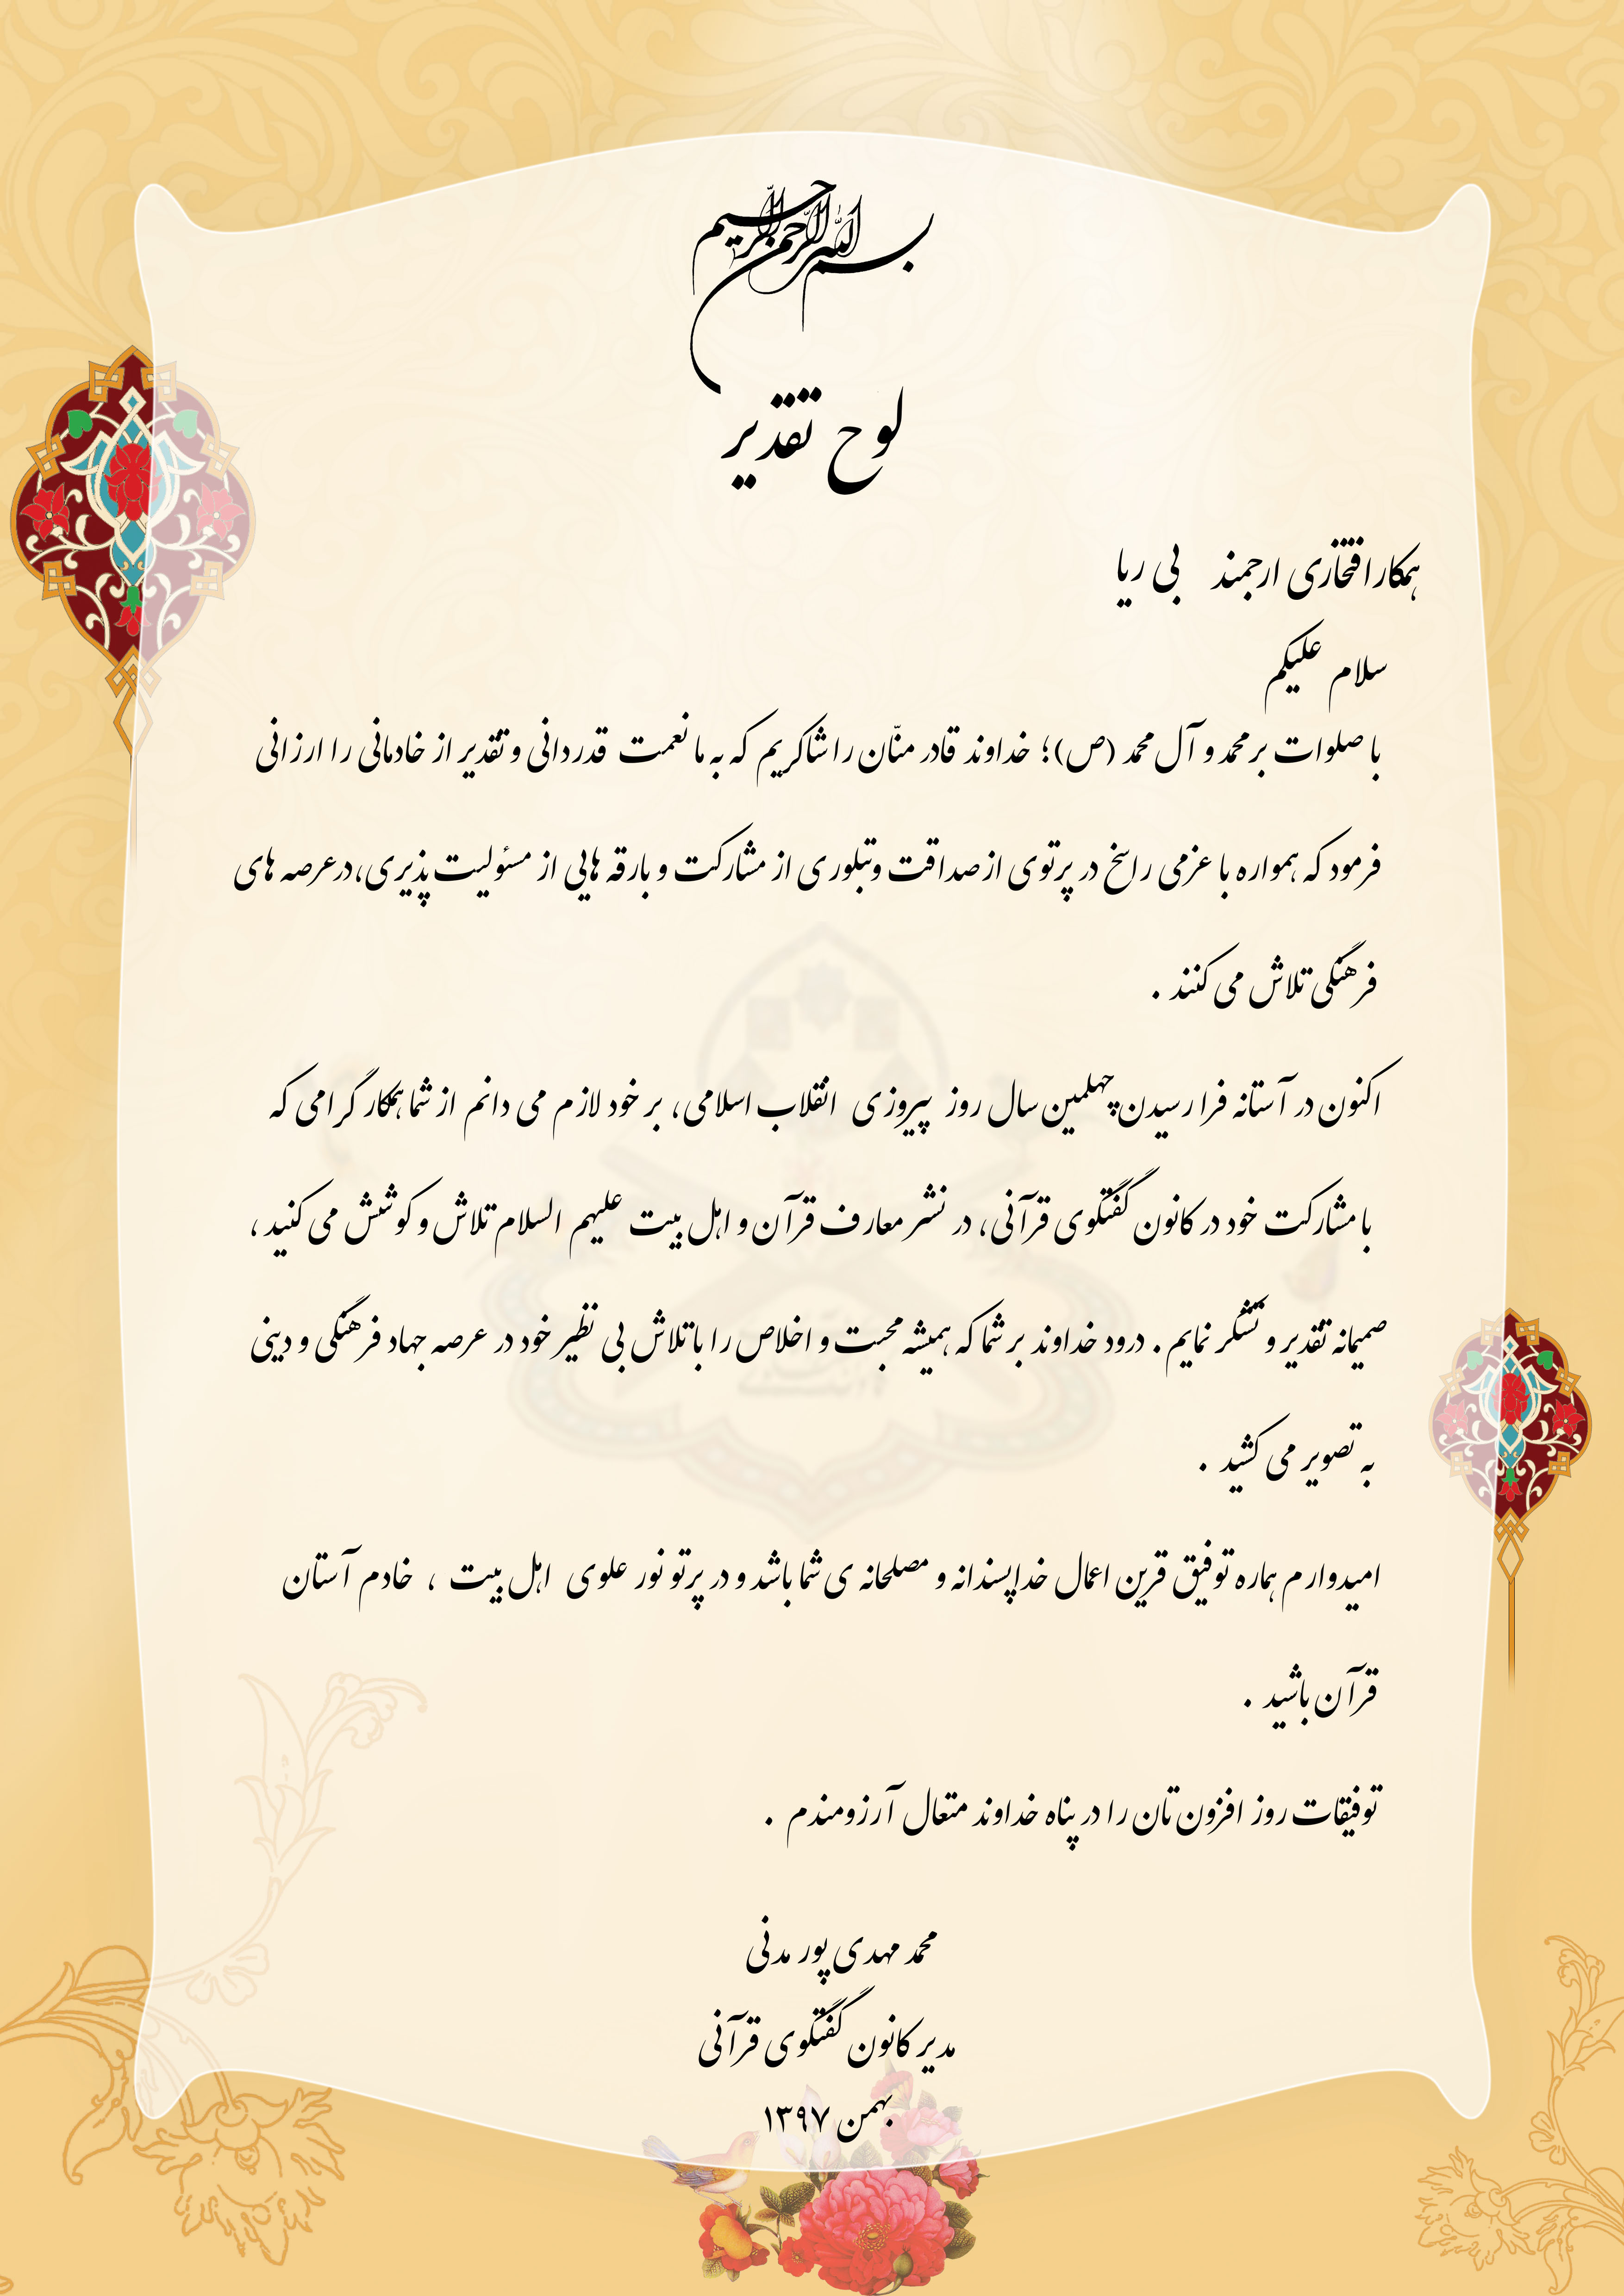 بسم الله الرحمن الرحیم
لوح تقدیر
همکار افتخاری ارجمند بی ریا
سلام علیکم
با صلوات بر محمد و آل محمد (ص)؛ خداوند قادر منّان را شاکریم که به ما نعمت قدردانی و تقدیر از خادمانی را ارزانی
فرمود که همواره با عزمی راسخ در پرتوی از صداقت وتبلوری از مشارکت و بارقه هایی از مسئولیت پذیری،درعرصه های
فرهنگی تلاش می کنند .
اکنون در آستانه فرا رسیدن چهلمین سال روز پیروزی انقلاب اسلامی، بر خود لازم می دانم از شما همکار گرامی که
با مشارکت خود در کانون گفتگوی قرآنی، در نشر معارف قرآن و اهل بیت علیهم السلام تلاش و کوشش می کنید ،
صمیمانه تقدیر و تشکر نمایم . درود خداوند بر شما که همیشه محبت و اخلاص را با تلاش بی نظیر خود در عرصه جهاد فرهنگی و دینی
به تصویر می کشید .
امیدوارم هماره توفیق قرین اعمال خداپسندانه و مصلحانه ی شما باشد و در پرتو نور علوی اهل بیت ، خادم آستان
قرآن باشید .
توفیقات روز افزون تان را در پناه خداوند متعال آرزومندم .
محمد مهدی پور مدنی
مدیر کانون گفتگوی قرآنی
بهمن ۱۳۹۷